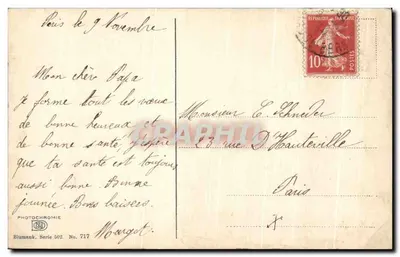 Paris le 9 Novembre
Mon chère Papa
je forme tout les vœux
de bonne heureux et
de bonne santé j'espère
que ta santé est toujours
aussi bonne. Bonne
journée. Bons baisers.
Margot.
Monsieur C. Schneider
23 rue D'Hauteville
Paris
X
REPUBLIQUE FRANÇAISE
10
POSTES
PHOTOCHROMIE
Bismouk, Serie 502. No. 717